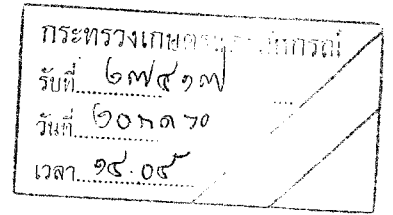 กระทรวงเกษตรและสหกรณ์
รับที่ ๒๗๔๑๗
วันที่ ๒๐
เวลา ๑๔.๐๕